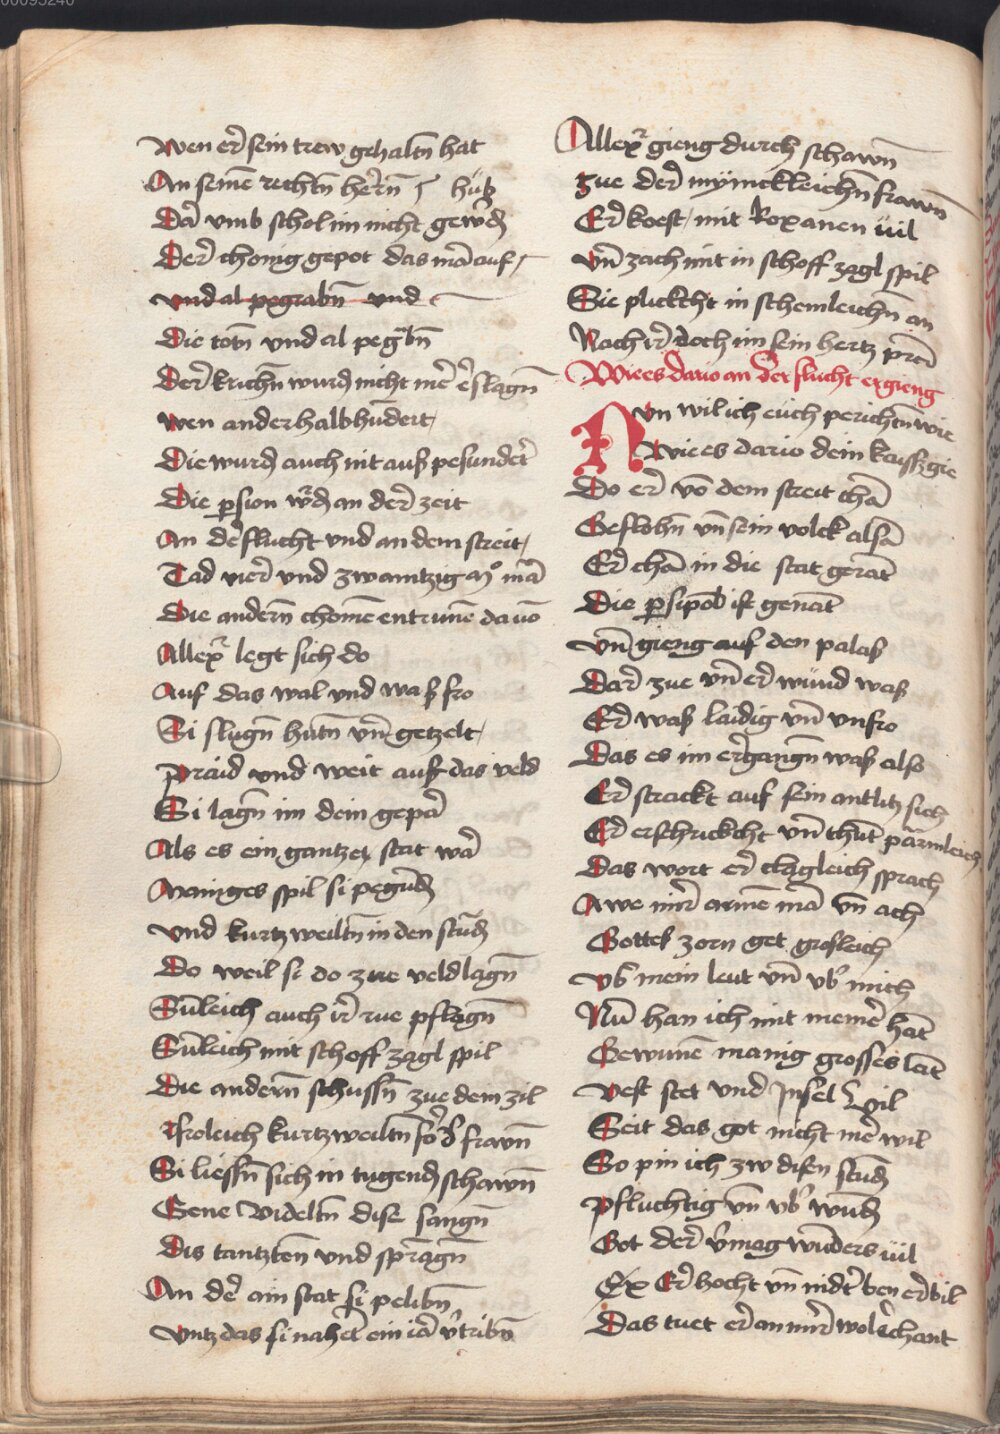 00095240
Wen er̄ sein trew gehaltn̄ hat
An seinē rechtn̄ her̄n̄
Dar̄ vmb schol im nicht gewer̄dn̄
Der̄ chonig gepot das mā auf
vnd al pegrabn̄ vnd
Die totn̄ vnd al pegrbn̄
Der̄ krichn̄ wurdn̄ nicht mer̄ er̄slagn̄
wen anderhalbhundert
Die wurdn̄ auch nit auß pesunder̄
Die persion wr̄dn̄ an der̄ zeit
An der̄ flucht vnd an dem streit
Tad vier̄ vnd zwaintzig mo mā
Die andern̄ chomē entrunē dauō
Allexr̄ legt sich do
Auf das wal vnd waß fro
Si slugn̄ hutn̄ vn̄ getzelt
Praid vnd weit auf das veld
Si lagn̄ im dem gepar̄
Als es ein gantzer stat war̄
Maniges spil si pegundn̄
vnd kurtzweiltn̄ in den stundn̄
Do weil si do zue veld lagn̄
Sūleich auch ir̄ rue pflagn̄
Sūleich mit schoff zagl spil
Die andern̄ schussn̄ zue dem zil
froleich kurtzweiltn̄ vor̄ d' frawn̄
Si liessn̄ sich in tugendn̄ schawn̄
Gene videltn̄ dise sangn̄
Dis tantztn̄ vnd spragn̄
An der̄ ain stat si pelibn̄
vntz das si nahet ein iar̄ v'tribn̄
Allexr̄ gieng durch schawn̄
zue der̄ mynickleichn̄ frawn̄
Er̄ koest mit Roxanen vil
vn̄ zach mit in schoff zagl spil
Sie plickcht in schemleichn̄ an
Nach ir̄ doch im sein hertz pran̄
Wie es dario an der flucht ergieng
Nvn wil ich euch perichtn̄ wie
wie es dario dem kaisser gie
Do er̄ vō dem streit chā
Geflohn̄ vn̄ sein volck alsā
Er̄ chā in die stat gerāt
Die persipol̄ ist genāt
vn̄ gieng auf den palaß
Dar̄ zue vn̄ er̄ wund waß
Er̄ waß laidig vn̄ vnfro
Das es im er̄gangn̄ waß also
Er̄ strackt auf sein antlitz sich
Er̄ erschrickcht vn̄ thut parmleich
Das wort er̄ clagleich sprach
Awe mir̄ armē mā vn̄ ach
Gottes zorn get grosleich
vb' mein leut vn̄ vb' mich
Nū han ich mit meiner̄ hāt
Gewunē manig grosses lāt
vest stet vnd Insel vil
Seit das got nicht mer̄ wil
So pin ich zw disen stundn̄
pfluchtig vn̄ vb' wundn̄
Got der̄ v'mag wunders vil
Er̄ hocht vn̄ nidert ben er̄ wil
Das tuet er̄ an mir̄ wol echant